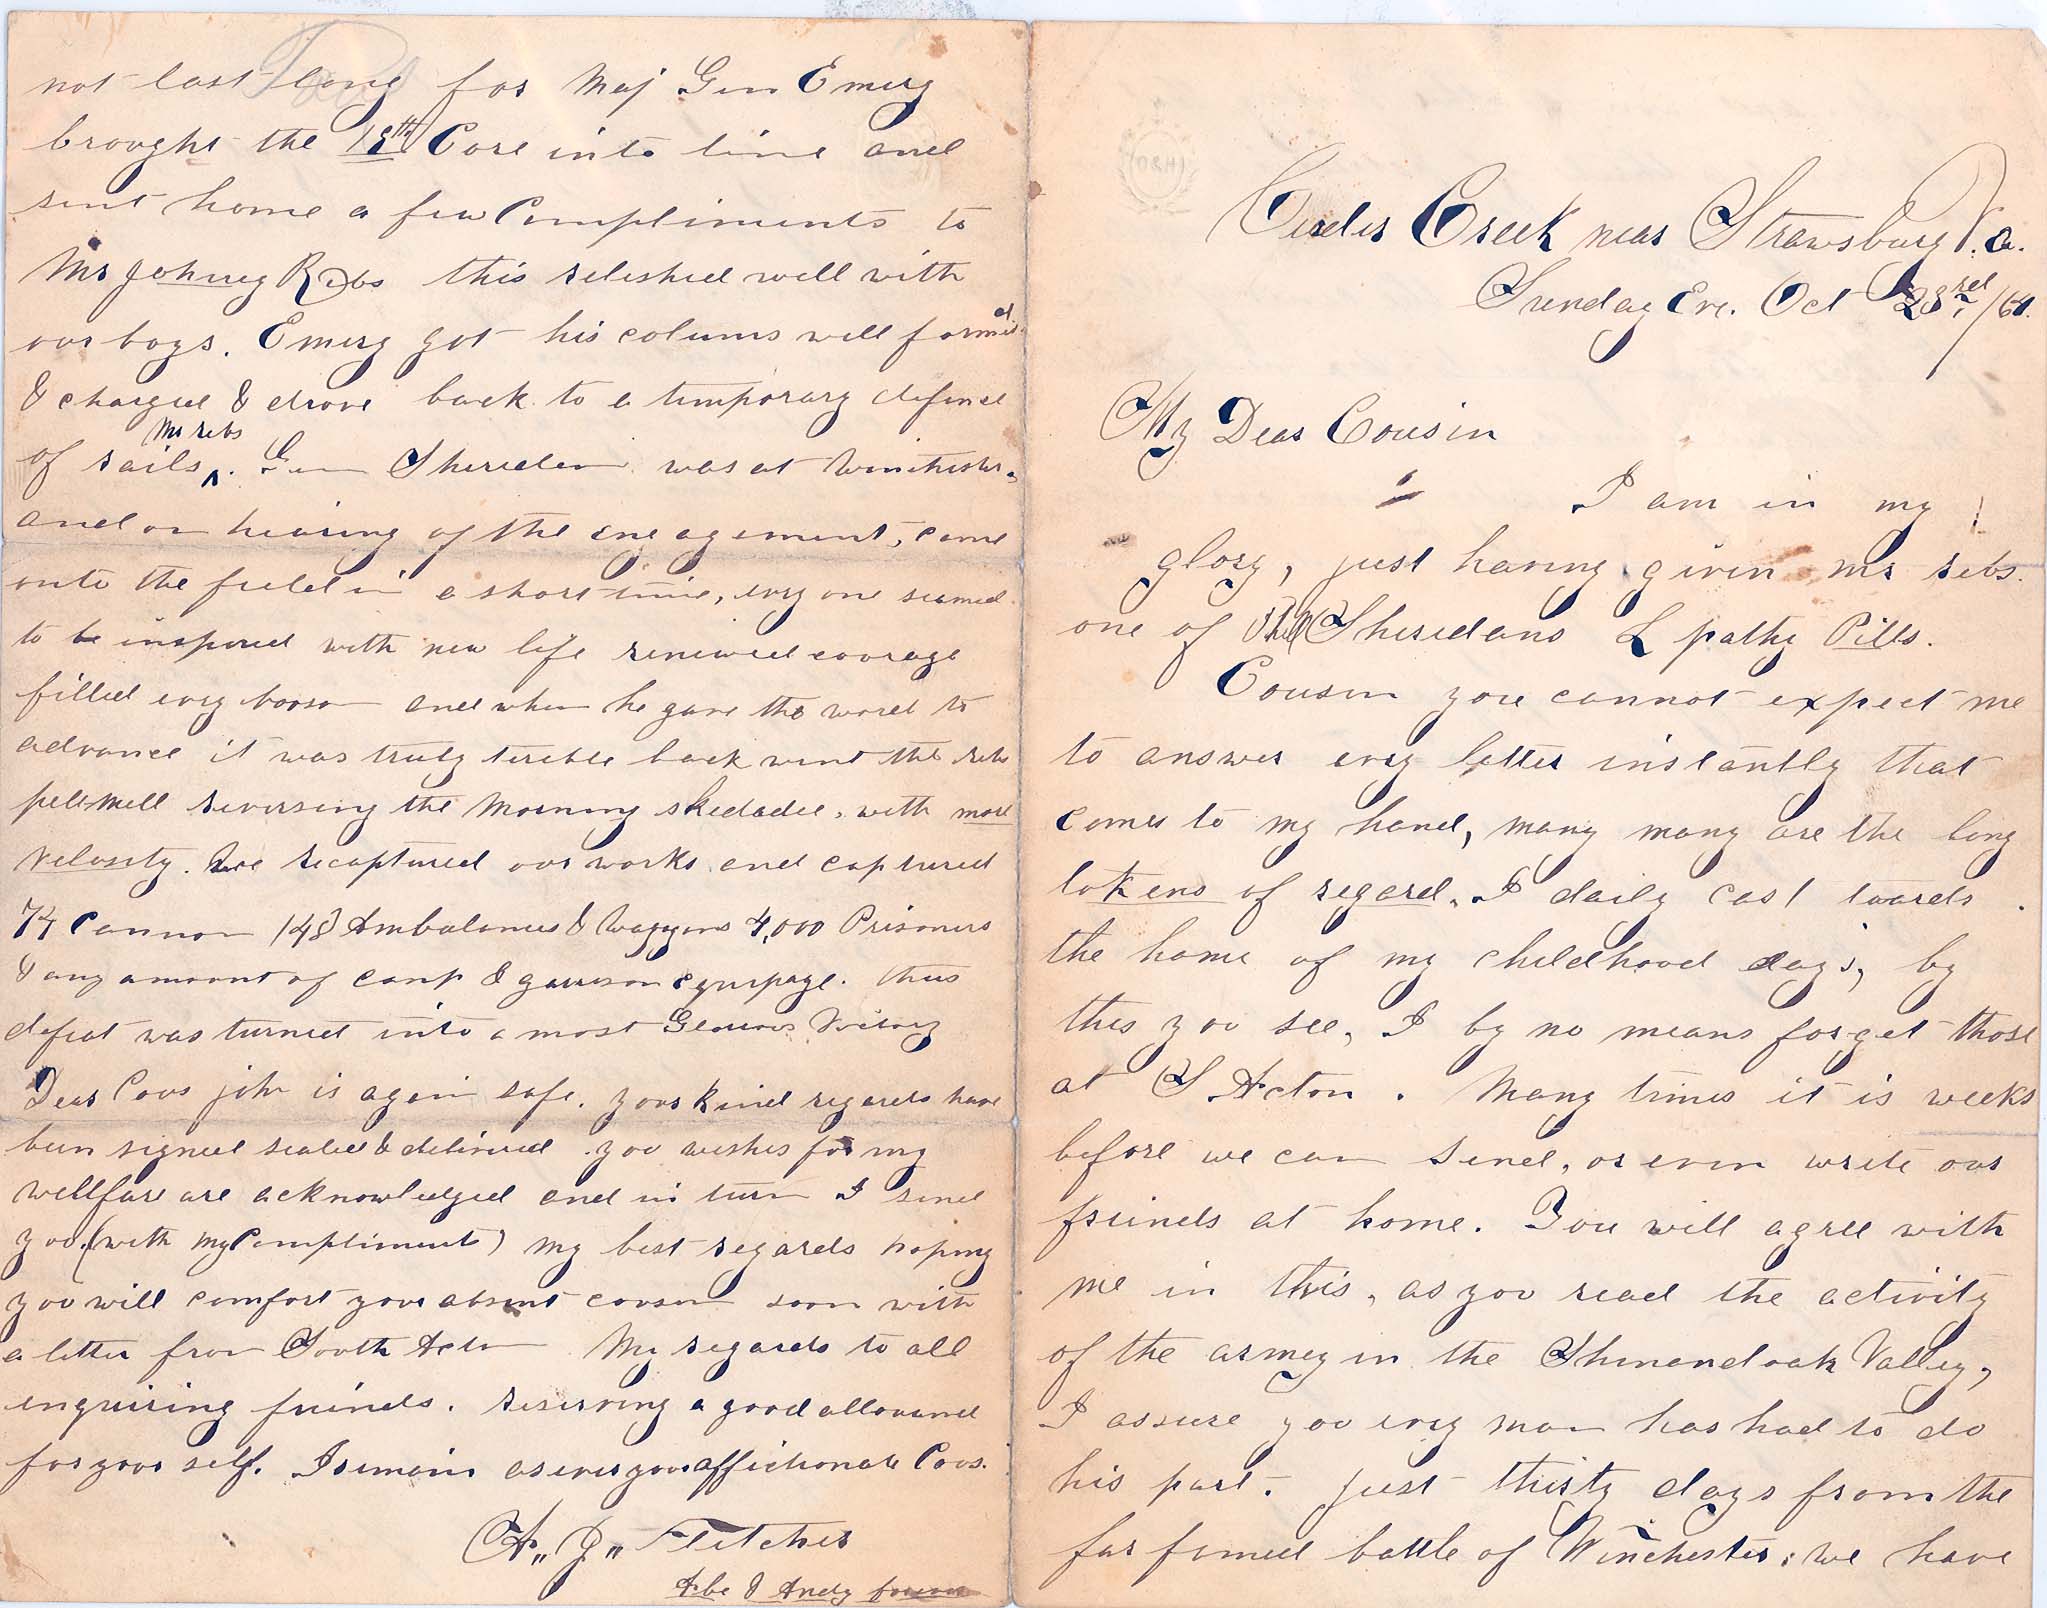 Ceder Creek near Strawsburg Va.
Sunday Eve. Oct 23rd, /64.
My Dear Cousin
I am in my
glory, just having given Mr rebs.
one of Phil Sheridans L pathy Pills.
Cousin you cannot expect me
to answer evry letter instantly that
comes to my hand, many many are the long
tokens of regard, I daily cast towards
the home of my childhood days, by
this you see, I by no means forget those
at S. Acton. Many times it is weeks
before we can send, or even write our
friends at home. You will agree with
me in this, as you read the activity
of the army in the Shenandoah Valley,
I assure you evry man has had to do
his part. just thirty days from the
far famed battle of Winchester; we have
not last long for Maj Gen Emery
brought the 19th Core into line and
sent home a few Compliments to
Mr Johney Rebs this relished well with
our boys. Emery got his colums well formed
& charged & drove back to a temporary defence
of rails Mr rebs. Gen Sheridan was at Winchester,
and on hearing of the engagement, came
onto the field in a short time, evry one seemed
to be inspired with new life renewed courage
filled evry boosom and when he gave the word to
advance it was truly terible back went the rebs
pellmell reversing the Morning skedadle, with more
velosity. We recaptured our works and captured
74 Cannon 148 Ambulances & Waggons 4,000 Prisoners
& any amount of camp & garrison equipage. thus
defeat was turned into a most Glorious Victory
Dear Cous john is again safe. your kind regards have
been signed sealed & delivered. you wishes for my
wellfare are acknowledged and in turn I send
you, (with my Compliments) my best regards hoping
you will comfort your absent cousin soon with
a letter from South Acton My regards to all
enquiring friends. reserving a good allowance
for your self. I remain as ever your affectionate Cous.
A,, J,, Fletcher
Abe & Andy